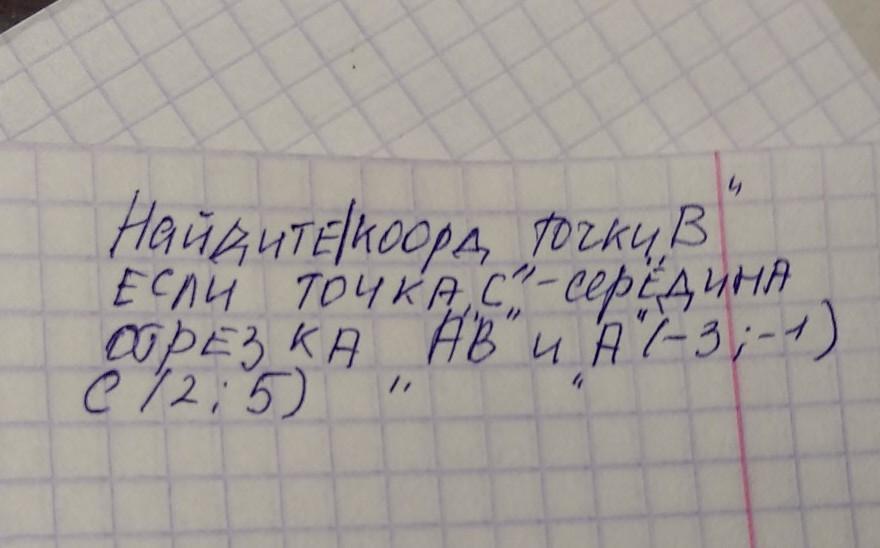 Найдите коорд точки „В"
если точка „С" - середина
отрезка „АВ" и „А" (-3; -1)
С (2; 5)